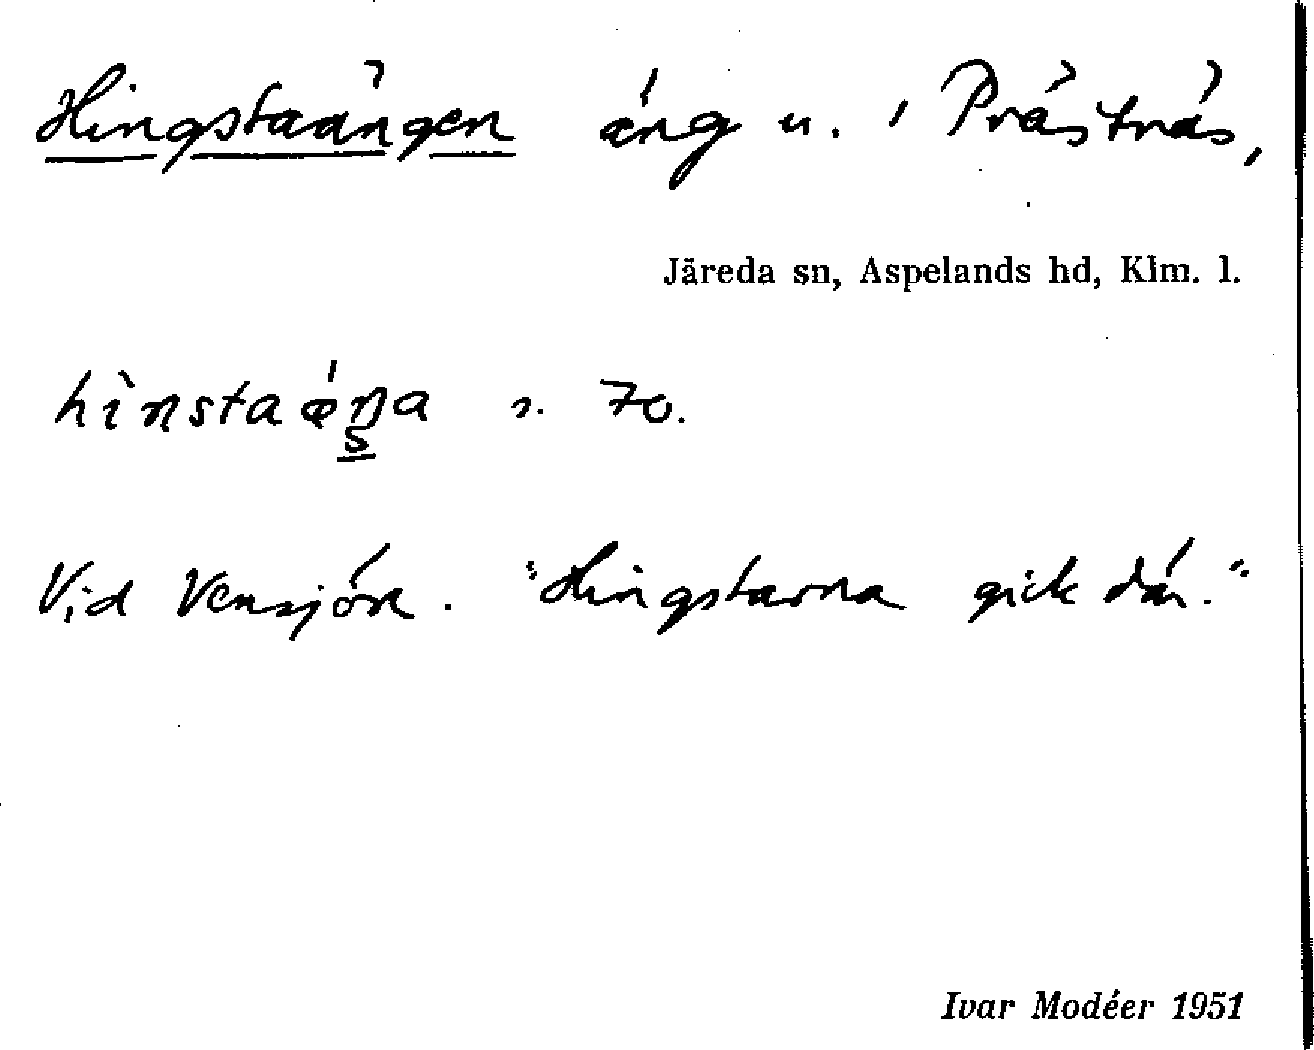 Hingstaängen äng u. i Prästräs,
Järeda sn, Aspelands hd, Klm. l.
hìnstaǽŋa s. 70.
Vid Vensjön. "Hingstarna gick där."
Ivar Modéer 1951